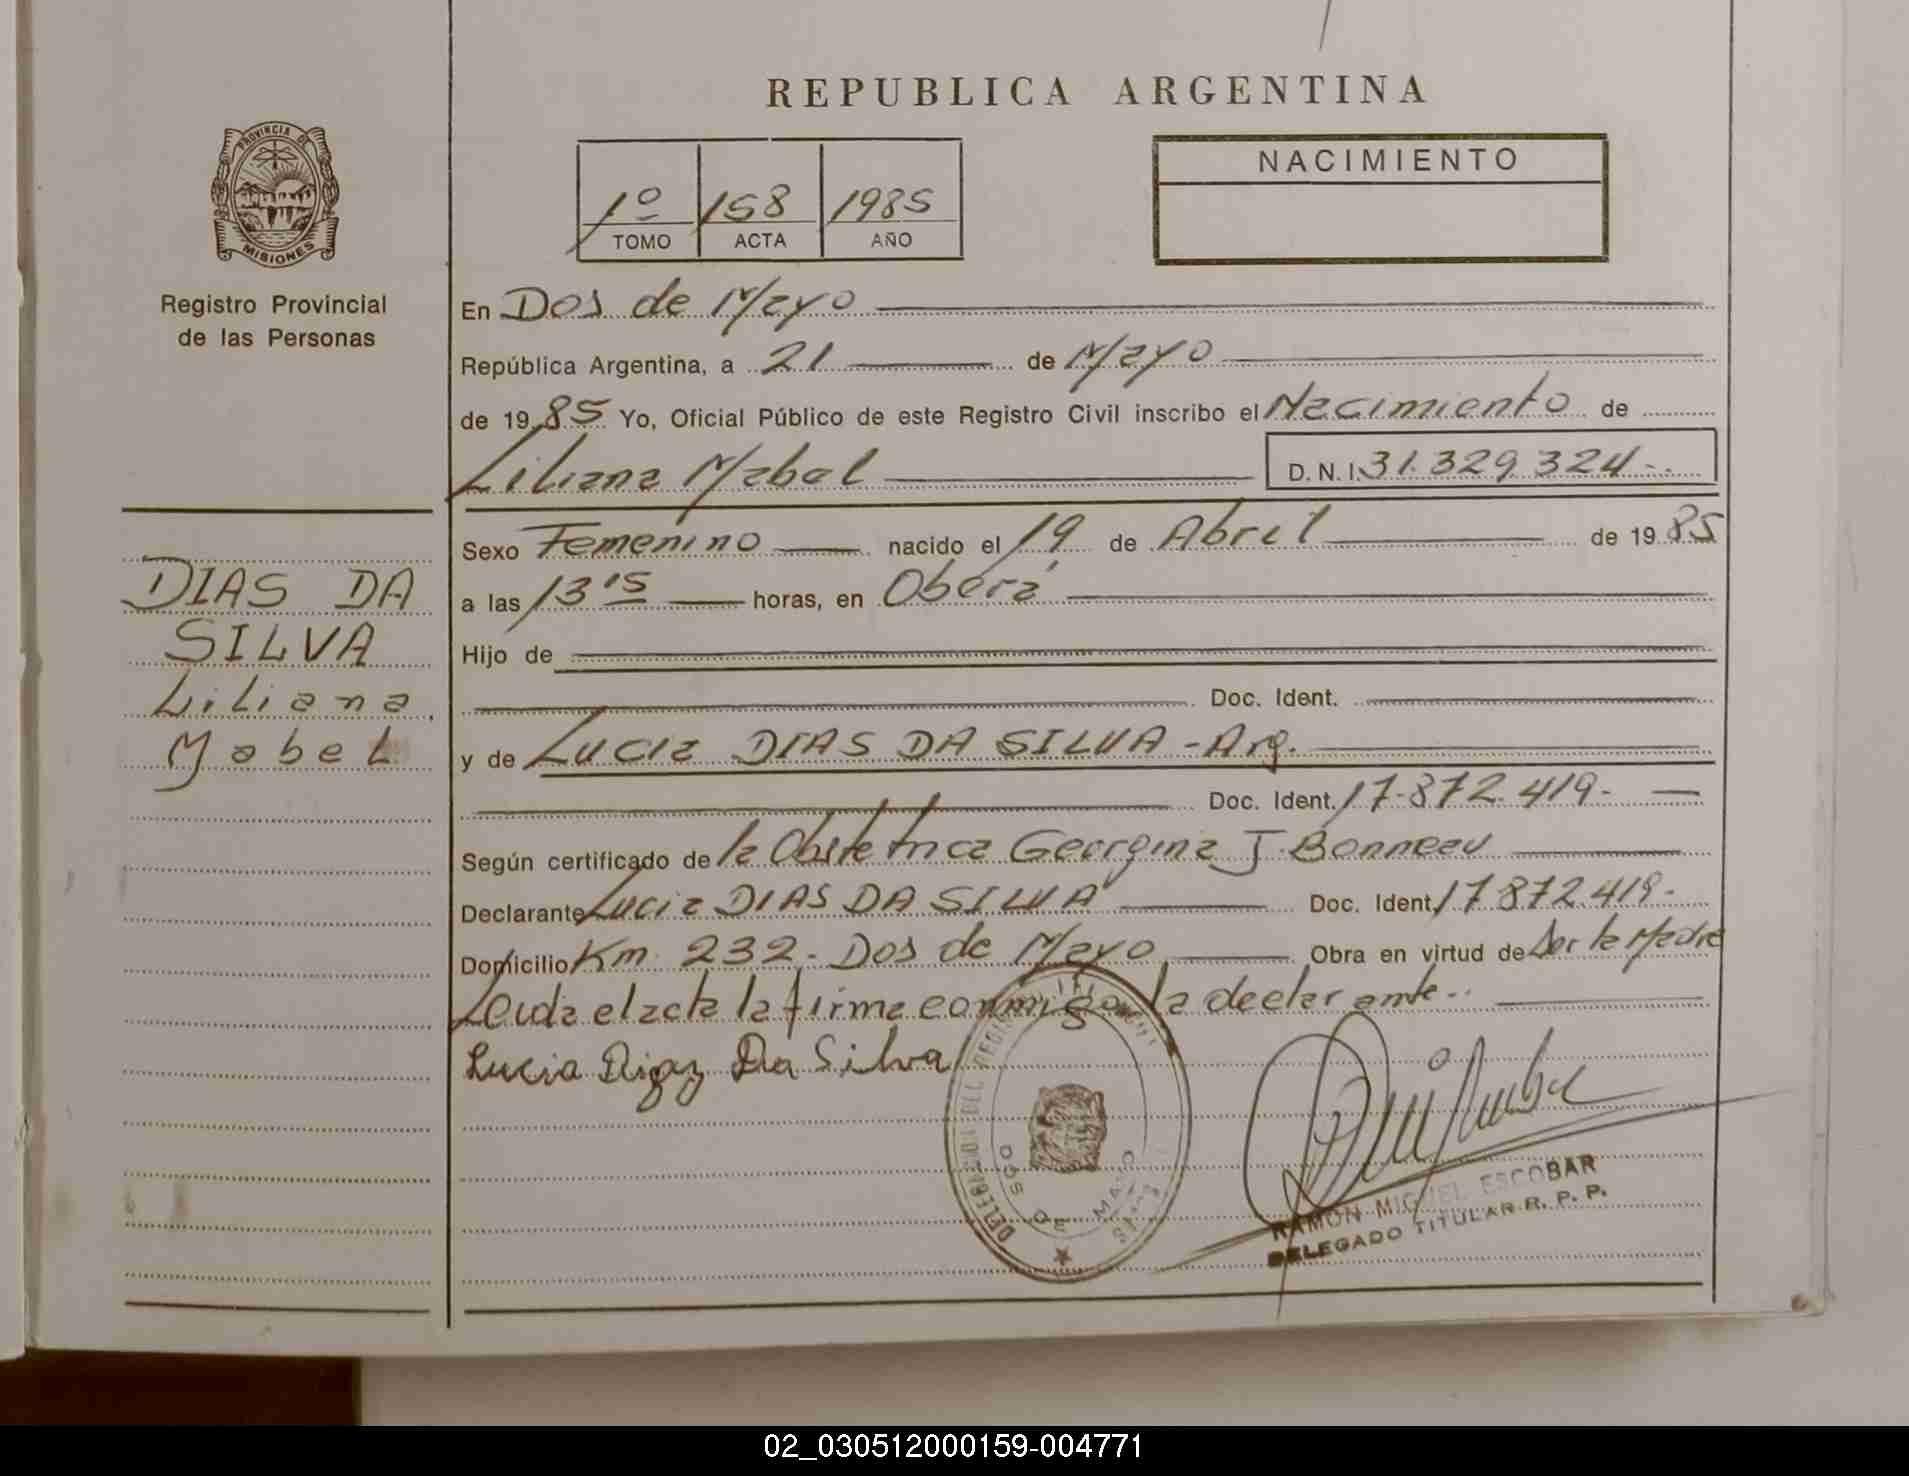 REPUBLICA ARGENTINA
PROVINCIA DE
MISIONES
Registro Provincial
de las Personas
1º 158 1985
TOMO ACTA AÑO
NACIMIENTO
En Dos de Mayo
República Argentina, a 21 de Mayo
de 1985 Yo, Oficial Público de este Registro Civil inscribo el Nacimiento de
Liliana Mabel D. N. I. 31.329.324-
Sexo Femenino nacido el 19 de Abril de 1985
a las 13'15 horas, en Oberá
Hijo de
Doc. Ident.
y de Lucia DIAS DA SILVA - Arg.
Doc. Ident. 17.872.419-
Según certificado de la Obstetrica Georgina J. Bonneau
Declarante Lucia DIAS DA SILVA Doc. Ident. 17.872.419-
Domicilio Km. 232 - Dos de Mayo Obra en virtud de ser la Madre
Leida el acta la firma conmigo la declarante..
Lucia Diaz Da Silva
DIAS DA
SILVA
Liliana
Mabel
DELEGACION DEL REGISTRO
DOS DE MAYO
RAMON MIGUEL ESCOBAR
DELEGADO TITULAR R. P. P.
02_030512000159-004771